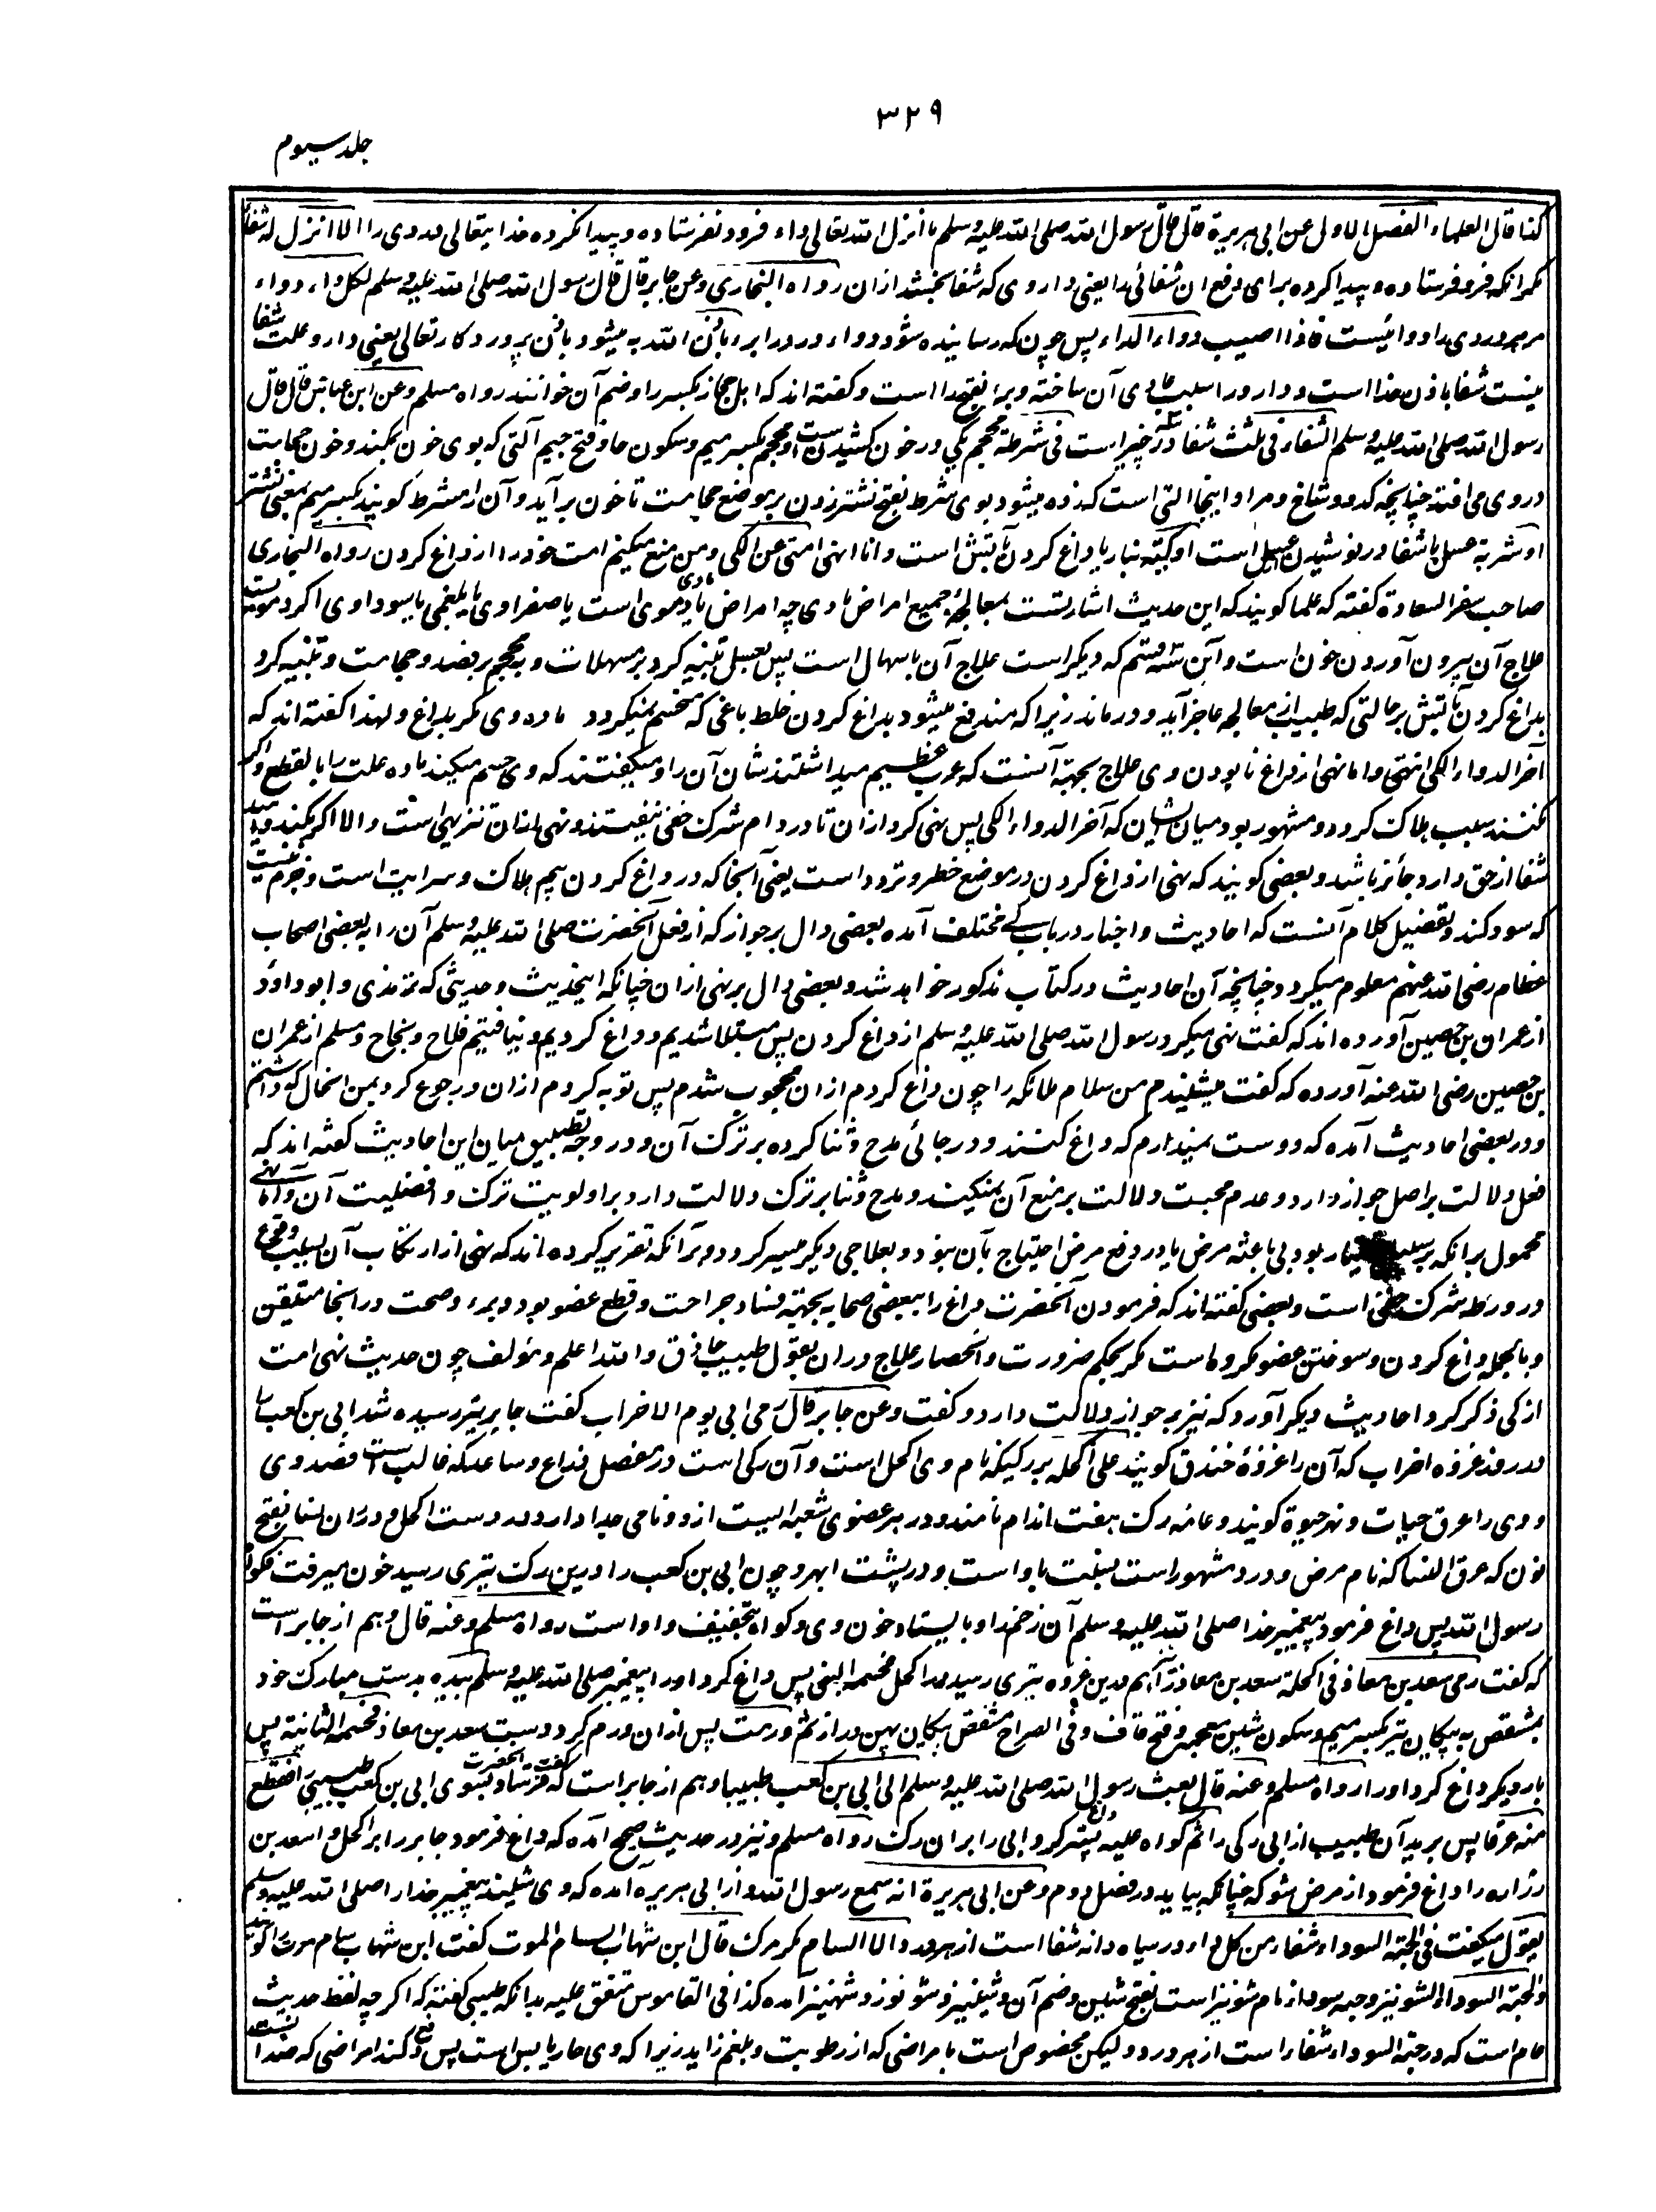 ۳۲۹
جلد سیوم
کذا قال العلماء الفصل الاول عن ابی هریرة قال قال رسول الله صلی الله علیه وسلم ما انزل الله تعالی داء فرود نفرستاده و پیدا نکرده خدایتعالی دردی را الا انزل له شفاء
مگر آنکه فرو فرستاده و پیدا کرده برای دفع ان شفائی را یعنی داروی که شفا بخشد ازان رواه البخاری وعن جابر قال قال رسول الله صلی الله علیه وسلم لکل داء دواء
مر هر دردی را دوائیست فاذا اصیب دواء الداء پس چون که رسانیده شود دواء درد را برء باذن الله به میشود باذن پروردگار تعالی یعنی دارو علت شفا
نیست شفا باذن خدا است و دارو را سبب عادی آن ساخته و برء بفتح با است و گفته اند که اهل حجاز بکسر را و ضم آن خوانند رواه مسلم وعن ابن عباس قال قال
رسول الله صلی الله علیه وسلم الشفاء فی ثلث شفا در سه چیز است فی شرطة محجم یکی در خون کشیدن است و محجم بکسر میم و سکون حا و فتح جیم آلتی که بوی خون بکند و خون حجامت
در وی می افتد چنانچه کدو و شاخ و مراد اینجا التی است که زده میشود بوی شرط بفتح نشتر زدن بر موضع حجامت تا خون بر آید و آن را مشرط گویند بکسر میم بمعنی نشتر
او شربة عسل یا شفا در نوشیدن عسل است او کیّة بنار یا داغ کردن بآتش است وانا انهی امتی عن الکی و من منع میکنم امت خود را از داغ کردن رواه البخاری
صاحب سفر السعادة گفته که علما گویند که این حدیث اشارتست بمعالجه جمیع امراض مادی چه امراض مادی یا دموی است یا صفراوی یا بلغمی یا سوداوی اگر دمویست
علاج آن بیرون آوردن خون است و آین سه قسم که دیگر است علاج آن باسهال است پس بعسل تنبیه کرد بر مسهلات و به محجم بر فصد و حجامت و تنبیه کرد
بداغ کردن بآتش بر حالتی که طبیب از معالجه عاجز آید و درماند زیرا که مندفع میشود بداغ کردن خلط باغی که منحسم نمیگردد ماده وی مگر بداغ ولهذا گفته اند که
آخر الدواء الکی انتهی واما نهی از داغ با بودن وی علاج بجهة آنست که عرب عظیم میداشتند شان آن را و میگفتند که وی حسم میکند ماده علت را بالقطع واگر
نکنند سبب هلاک گردد و مشهور بود میان ایشان که آخر الدواء الکی پس نهی کرد ازان تا در دام شرک خفی نیفتند و نهی ازان تنزیهی است والا اگر بکند و امید
شفا از حق دارد جائز باشد و بعضی گویند که نهی از داغ کردن در موضع خطر و تردد است یعنی آنجا که در داغ کردن بیم هلاک و سرایت است و جزم نیست
که سود کند و تفصیل کلام آنست که احادیث و اخبار در باب کی مختلف آمده بعضی دال بر جواز که از فعل آنحضرت صلی الله علیه وسلم آن را به بعضی اصحاب
عظام رضی الله عنهم معلوم میگردد و چنانچه آن احادیث در کتاب مذکور خواهد شد و بعضی دال بر نهی ازان چنانکه اینحدیث و حدیثی که ترمذی و ابو داود
از عمران بن حصین آورده اند که گفت نهی میکرد رسول الله صلی الله علیه وسلم از داغ کردن پس مبتلا شدیم و داغ کردیم و نیافتیم فلاح و نجاح و مسلم از عمران
بن حصین رضی الله عنه آورده که گفت میشنیدم من سلام ملائکه را چون داغ کردم ازان محجوب شدم پس توبه کردم ازان و رجوع کرد بمن انحال که داشتم
و در بعضی احادیث آمده که دوست نمیدارم که داغ کنند و در جائی مدح و ثنا کرده بر ترک آن و در وجه تطبیق میان این احادیث گفته اند که
فعل دلالت بر اصل جواز دارد و عدم محبت دلالت بر منع آن نمیکند و مدح و ثنا بر ترک دلالت دارد بر اولویت ترک و افضلیت آن و اما نهی
محمول بر انکه بر سبیل اختیار بود بی باعثه مرض یا در دفع مرض احتیاج بآن نبود و بعلاجی دیگر میسر گردد و برآنکه تقریر کرده اند که نهی از ارتکاب آن بسبب وقوع
در ورطه شرک خفی است و بعضی گفته اند که فرمودن آنحضرت داغ را ببعضی صحابه بجهة فساد جراحت و قطع عضو بود و برء و صحت در اینجا متیقن
و بالجمله داغ کردن و سوختن عضو مکروه است مگر بحکم ضرورت و انحصار علاج دران بقول طبیب حاذق والله اعلم و مؤلف چون حدیث نهی امت
از کی ذکر کرد احادیث دیگر آورد که نیز بر جواز دلالت دارد و گفت وعن جابر قال رمی ابی یوم الاحزاب گفت جابر بتیر رسیده شد ابی بن کعب
در روز غزوه احزاب که آن را غزوهٔ خندق گویند علی اکحله بر رگیکه نام وی اکحل است و آن رگی است در مفصل ذراع و ساعد که غالب است فصد وی
و وی را عرق حیات و نهر حیوة گویند و عامه رگ هفت اندام نامند و در هر عضوی شعبه ایست از و نامی جدا دارد در دست اکحل و در ران نسا بفتح
نون که عرق النسا که نام مرض و درد مشهور است بنسبت باو است و در پشت ابهر و چون ابی بن کعب را درین رگ تیری رسید خون میرفت فکواه
رسول الله پس داغ فرمود پیغمبر خدا صلی الله علیه وسلم آن زخم را و بایستاد خون وی و کواه بتخفیف واو است رواه مسلم وعنه قال و هم از جابر است
که گفت رمی سعد بن معاذ فی اکحله سعد بن معاذ را هم درین غزوه تیری رسید در اکحل فحسمه النبی پس داغ کرد او را پیغمبر صلی الله علیه وسلم بیده بدست مبارک خود
بمشقص به پیکان تیر بکسر میم و سکون شین معجمه و فتح قاف و فی الصراح مشقص پیکان پهن دراز ثم ورمت پس ازان ورم کرد دست سعد بن معاذ فحسمه الثانیة پس
بار دیگر داغ کرد او را رواه مسلم وعنه قال بعث رسول الله صلی الله علیه وسلم الی ابی بن کعب طبیبا و هم از جابر است که گفت فرستاد آنحضرت بسوی ابی بن کعب طبیبی را فقطع
منه عرقا پس برید آن طبیب از ابی رگی را ثم کواه علیه پستر داغ کرد ابی را بران رگ رواه مسلم و نیز در حدیث صحیح آمده که داغ فرمود جابر را بر اکحل و اسعد بن
زراره را داغ فرمود از مرض شوکه چنانکه بیاید در فصل دوم وعن ابی هریرة انه سمع رسول الله و از ابی هریره آمده که وی شنید پیغمبر خدا را صلی الله علیه وسلم
یقول میگفت فی الحبة السوداء شفاء من کل داء در سیاه دانه شفا است از هر درد الا السام مگر مرگ قال ابن شهاب السام الموت گفت ابن شهاب سام موت را گویند
والحبة السوداء الشونیز و حبه سودا نام شونیز است بفتح شین و ضم آن و شینیز و شونوز و شهنیز آمده کذا فی القاموس متفق علیه بدانکه طیبی گفته که اگرچه لفظ حدیث
عام است که در حبة السوداء شفا است از هر درد و لیکن مخصوص است بامراضی که از رطوبت و بلغم زاید زیرا که وی حار یابس است پس دفع کند امراضی که ضد انست